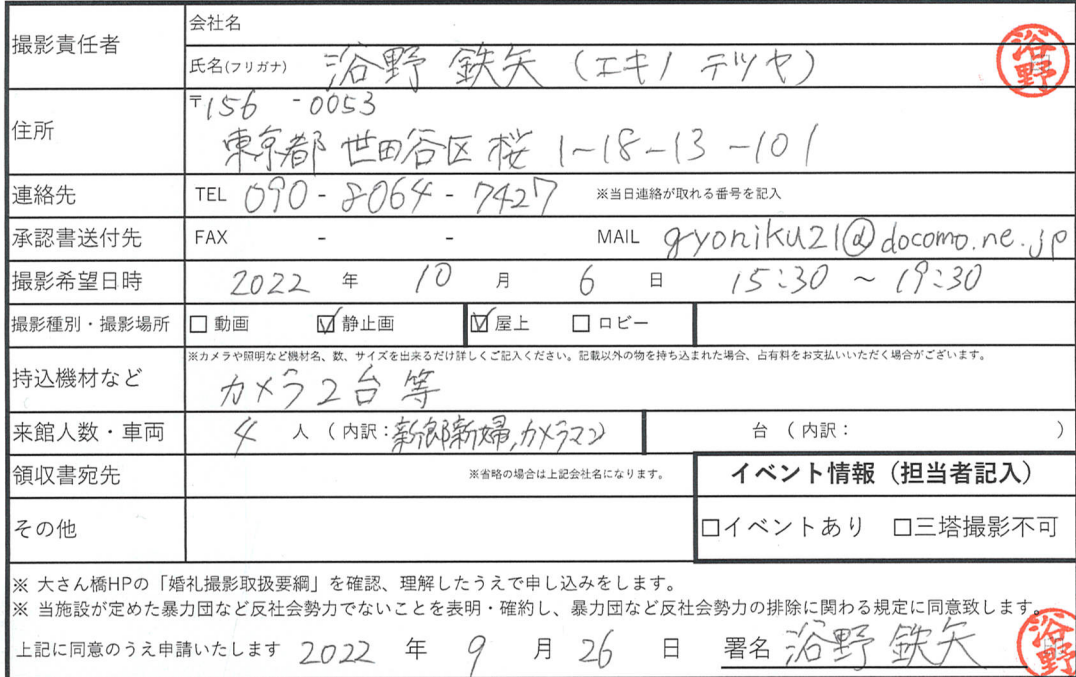 撮影責任者
会社名
氏名(フリガナ) 浴野 鉄矢 (エキノ テツヤ)
浴野
住所
〒156-0053
東京都 世田谷区 桜 1-18-13-101
連絡先 TEL 090-8064-7427 ※当日連絡が取れる番号を記入
承認書送付先 FAX - - MAIL gyoniku21@docomo.ne.jp
撮影希望日時 2022 年 10 月 6 日 15:30 ~ 19:30
撮影種別・撮影場所 □ 動画 ☑ 静止画 ☑ 屋上 □ ロビー
※カメラや照明など機材名、数、サイズを出来るだけ詳しくご記入ください。記載以外の物を持ち込まれた場合、占有料をお支払いいただく場合がございます。
持込機材など カメラ2台 等
来館人数・車両 4 人 (内訳:新郎新婦,カメラマン) 台 (内訳: )
領収書宛先 ※省略の場合は上記会社名になります。
イベント情報(担当者記入)
その他
□イベントあり □三塔撮影不可
※ 大さん橋HPの「婚礼撮影取扱要綱」を確認、理解したうえで申し込みをします。
※ 当施設が定めた暴力団など反社会勢力でないことを表明・確約し、暴力団など反社会勢力の排除に関わる規定に同意致します。
上記に同意のうえ申請いたします 2022 年 9 月 26 日 署名 浴野 鉄矢
浴野